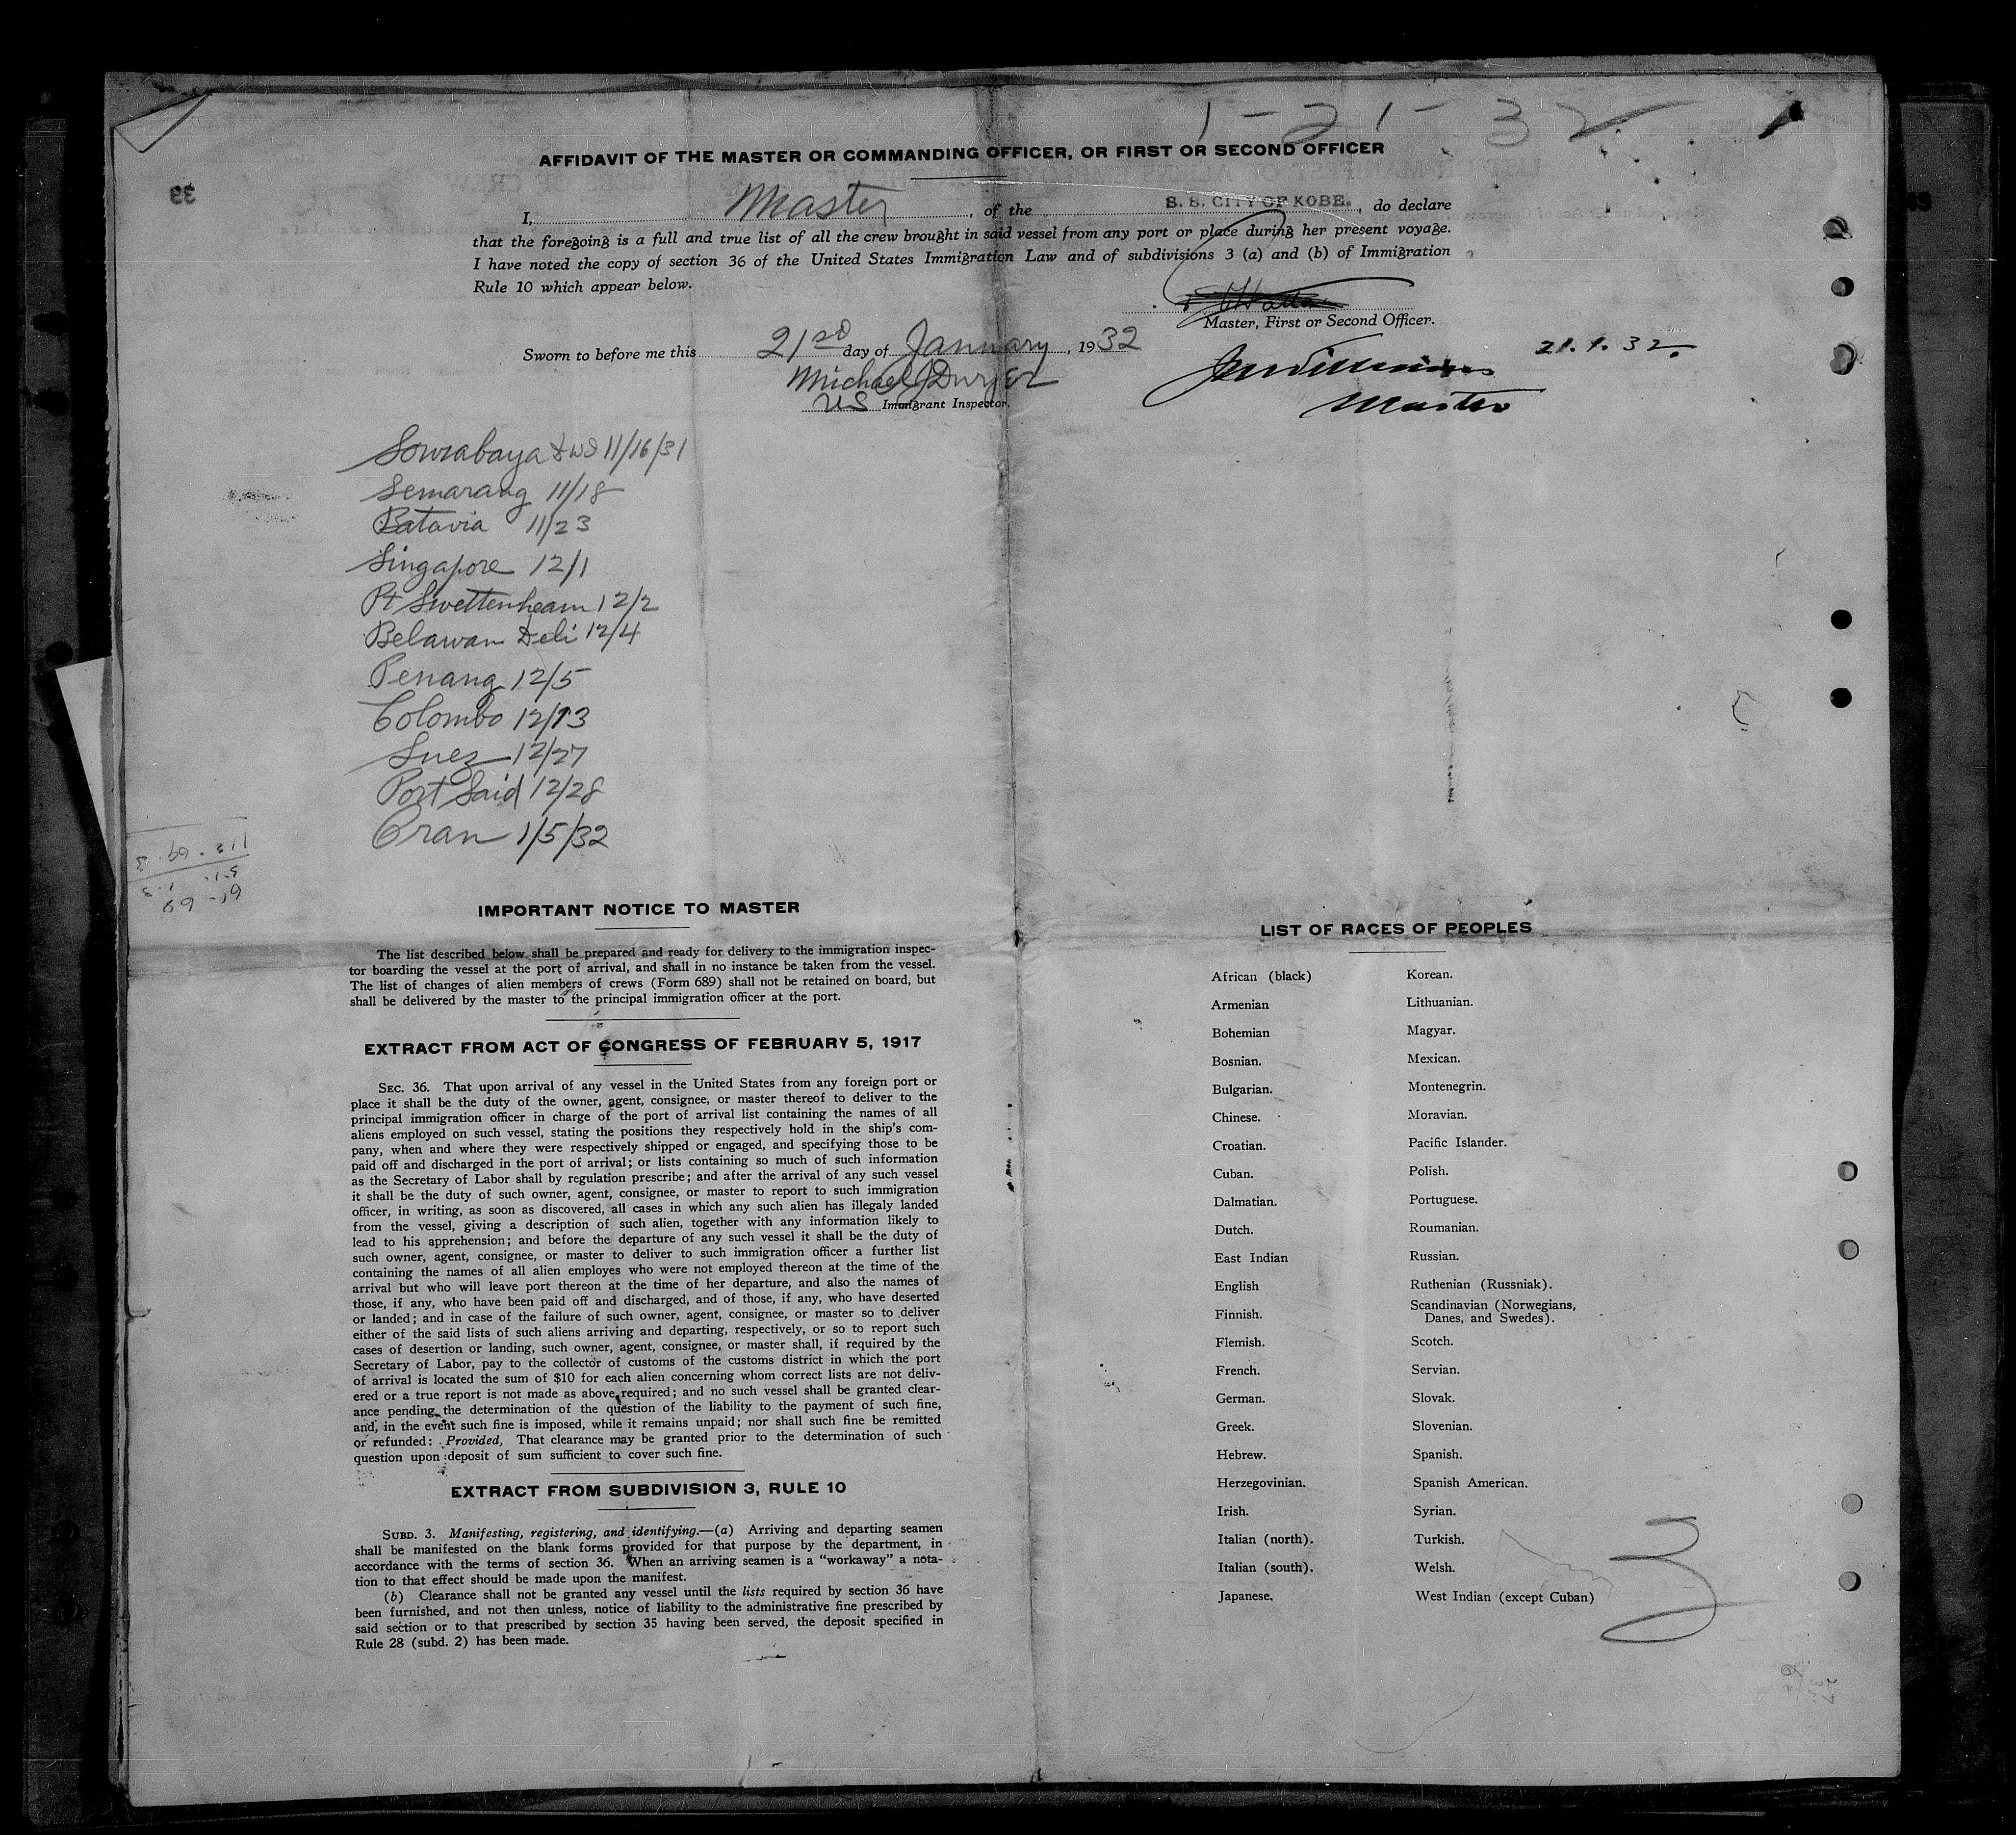 1-21-32
AFFIDAVIT OF THE MASTER OR COMMANDING OFFICER, OR FIRST OR SECOND OFFICER
33
I, Master, of the S. S. CITY OF KOBE., do declare
that the foregoing is a full and true list of all the crew brought in said vessel from any port or place during her present voyage.
I have noted the copy of section 36 of the United States Immigration Law and of subdivisions 3 (a) and (b) of Immigration
Rule 10 which appear below.
Master, First or Second Officer.
Sworn to before me this 21st day of January, 1932
21.1.32.
Michael J Dwyer
Master
US Immigrant Inspector.
Sourabaya 11/16/31
Semarang 11/18
Batavia 11/23
Singapore 12/1
Pt Swettenheam 12/2
Belawan Deli 12/4
Penang 12/5
Colombo 12/13
Suez 12/27
Port Said 12/28
Oran 1/5/32
IMPORTANT NOTICE TO MASTER
The list described below shall be prepared and ready for delivery to the immigration inspec-
tor boarding the vessel at the port of arrival, and shall in no instance be taken from the vessel.
The list of changes of alien members of crews (Form 689) shall not be retained on board, but
shall be delivered by the master to the principal immigration officer at the port.
EXTRACT FROM ACT OF CONGRESS OF FEBRUARY 5, 1917
SEC. 36. That upon arrival of any vessel in the United States from any foreign port or
place it shall be the duty of the owner, agent, consignee, or master thereof to deliver to the
principal immigration officer in charge of the port of arrival list containing the names of all
aliens employed on such vessel, stating the positions they respectively hold in the ship's com-
pany, when and where they were respectively shipped or engaged, and specifying those to be
paid off and discharged in the port of arrival; or lists containing so much of such information
as the Secretary of Labor shall by regulation prescribe; and after the arrival of any such vessel
it shall be the duty of such owner, agent, consignee, or master to report to such immigration
officer, in writing, as soon as discovered, all cases in which any such alien has illegally landed
from the vessel, giving a description of such alien, together with any information likely to
lead to his apprehension; and before the departure of any such vessel it shall be the duty of
such owner, agent, consignee, or master to deliver to such immigration officer a further list
containing the names of all alien employes who were not employed thereon at the time of the
arrival but who will leave port thereon at the time of her departure, and also the names of
those, if any, who have been paid off and discharged, and of those, if any, who have deserted
or landed; and in case of the failure of such owner, agent, consignee, or master so to deliver
either of the said lists of such aliens arriving and departing, respectively, or so to report such
cases of desertion or landing, such owner, agent, consignee, or master shall, if required by the
Secretary of Labor, pay to the collector of customs of the customs district in which the port
of arrival is located the sum of $10 for each alien concerning whom correct lists are not deliv-
ered or a true report is not made as above required; and no such vessel shall be granted clear-
ance pending the determination of the question of the liability to the payment of such fine,
and, in the event such fine is imposed, while it remains unpaid; nor shall such fine be remitted
or refunded: Provided, That clearance may be granted prior to the determination of such
question upon deposit of sum sufficient to cover such fine.
EXTRACT FROM SUBDIVISION 3, RULE 10
SUBD. 3. Manifesting, registering, and identifying.—(a) Arriving and departing seamen
shall be manifested on the blank forms provided for that purpose by the department, in
accordance with the terms of section 36. When an arriving seamen is a "workaway" a nota-
tion to that effect should be made upon the manifest.
(b) Clearance shall not be granted any vessel until the lists required by section 36 have
been furnished, and not then unless, notice of liability to the administrative fine prescribed by
said section or to that prescribed by section 35 having been served, the deposit specified in
Rule 28 (subd. 2) has been made.
LIST OF RACES OF PEOPLES
African (black)
Armenian
Bohemian
Bosnian.
Bulgarian.
Chinese.
Croatian.
Cuban.
Dalmatian.
Dutch.
East Indian
English
Finnish.
Flemish.
French.
German.
Greek.
Hebrew.
Herzegovinian.
Irish.
Italian (north).
Italian (south).
Japanese.
Korean.
Lithuanian.
Magyar.
Mexican.
Montenegrin.
Moravian.
Pacific Islander.
Polish.
Portuguese.
Roumanian.
Russian.
Ruthenian (Russniak).
Scandinavian (Norwegians,
Danes, and Swedes).
Scotch.
Servian.
Slovak.
Slovenian.
Spanish.
Spanish American.
Syrian.
Turkish.
Welsh.
West Indian (except Cuban)
3